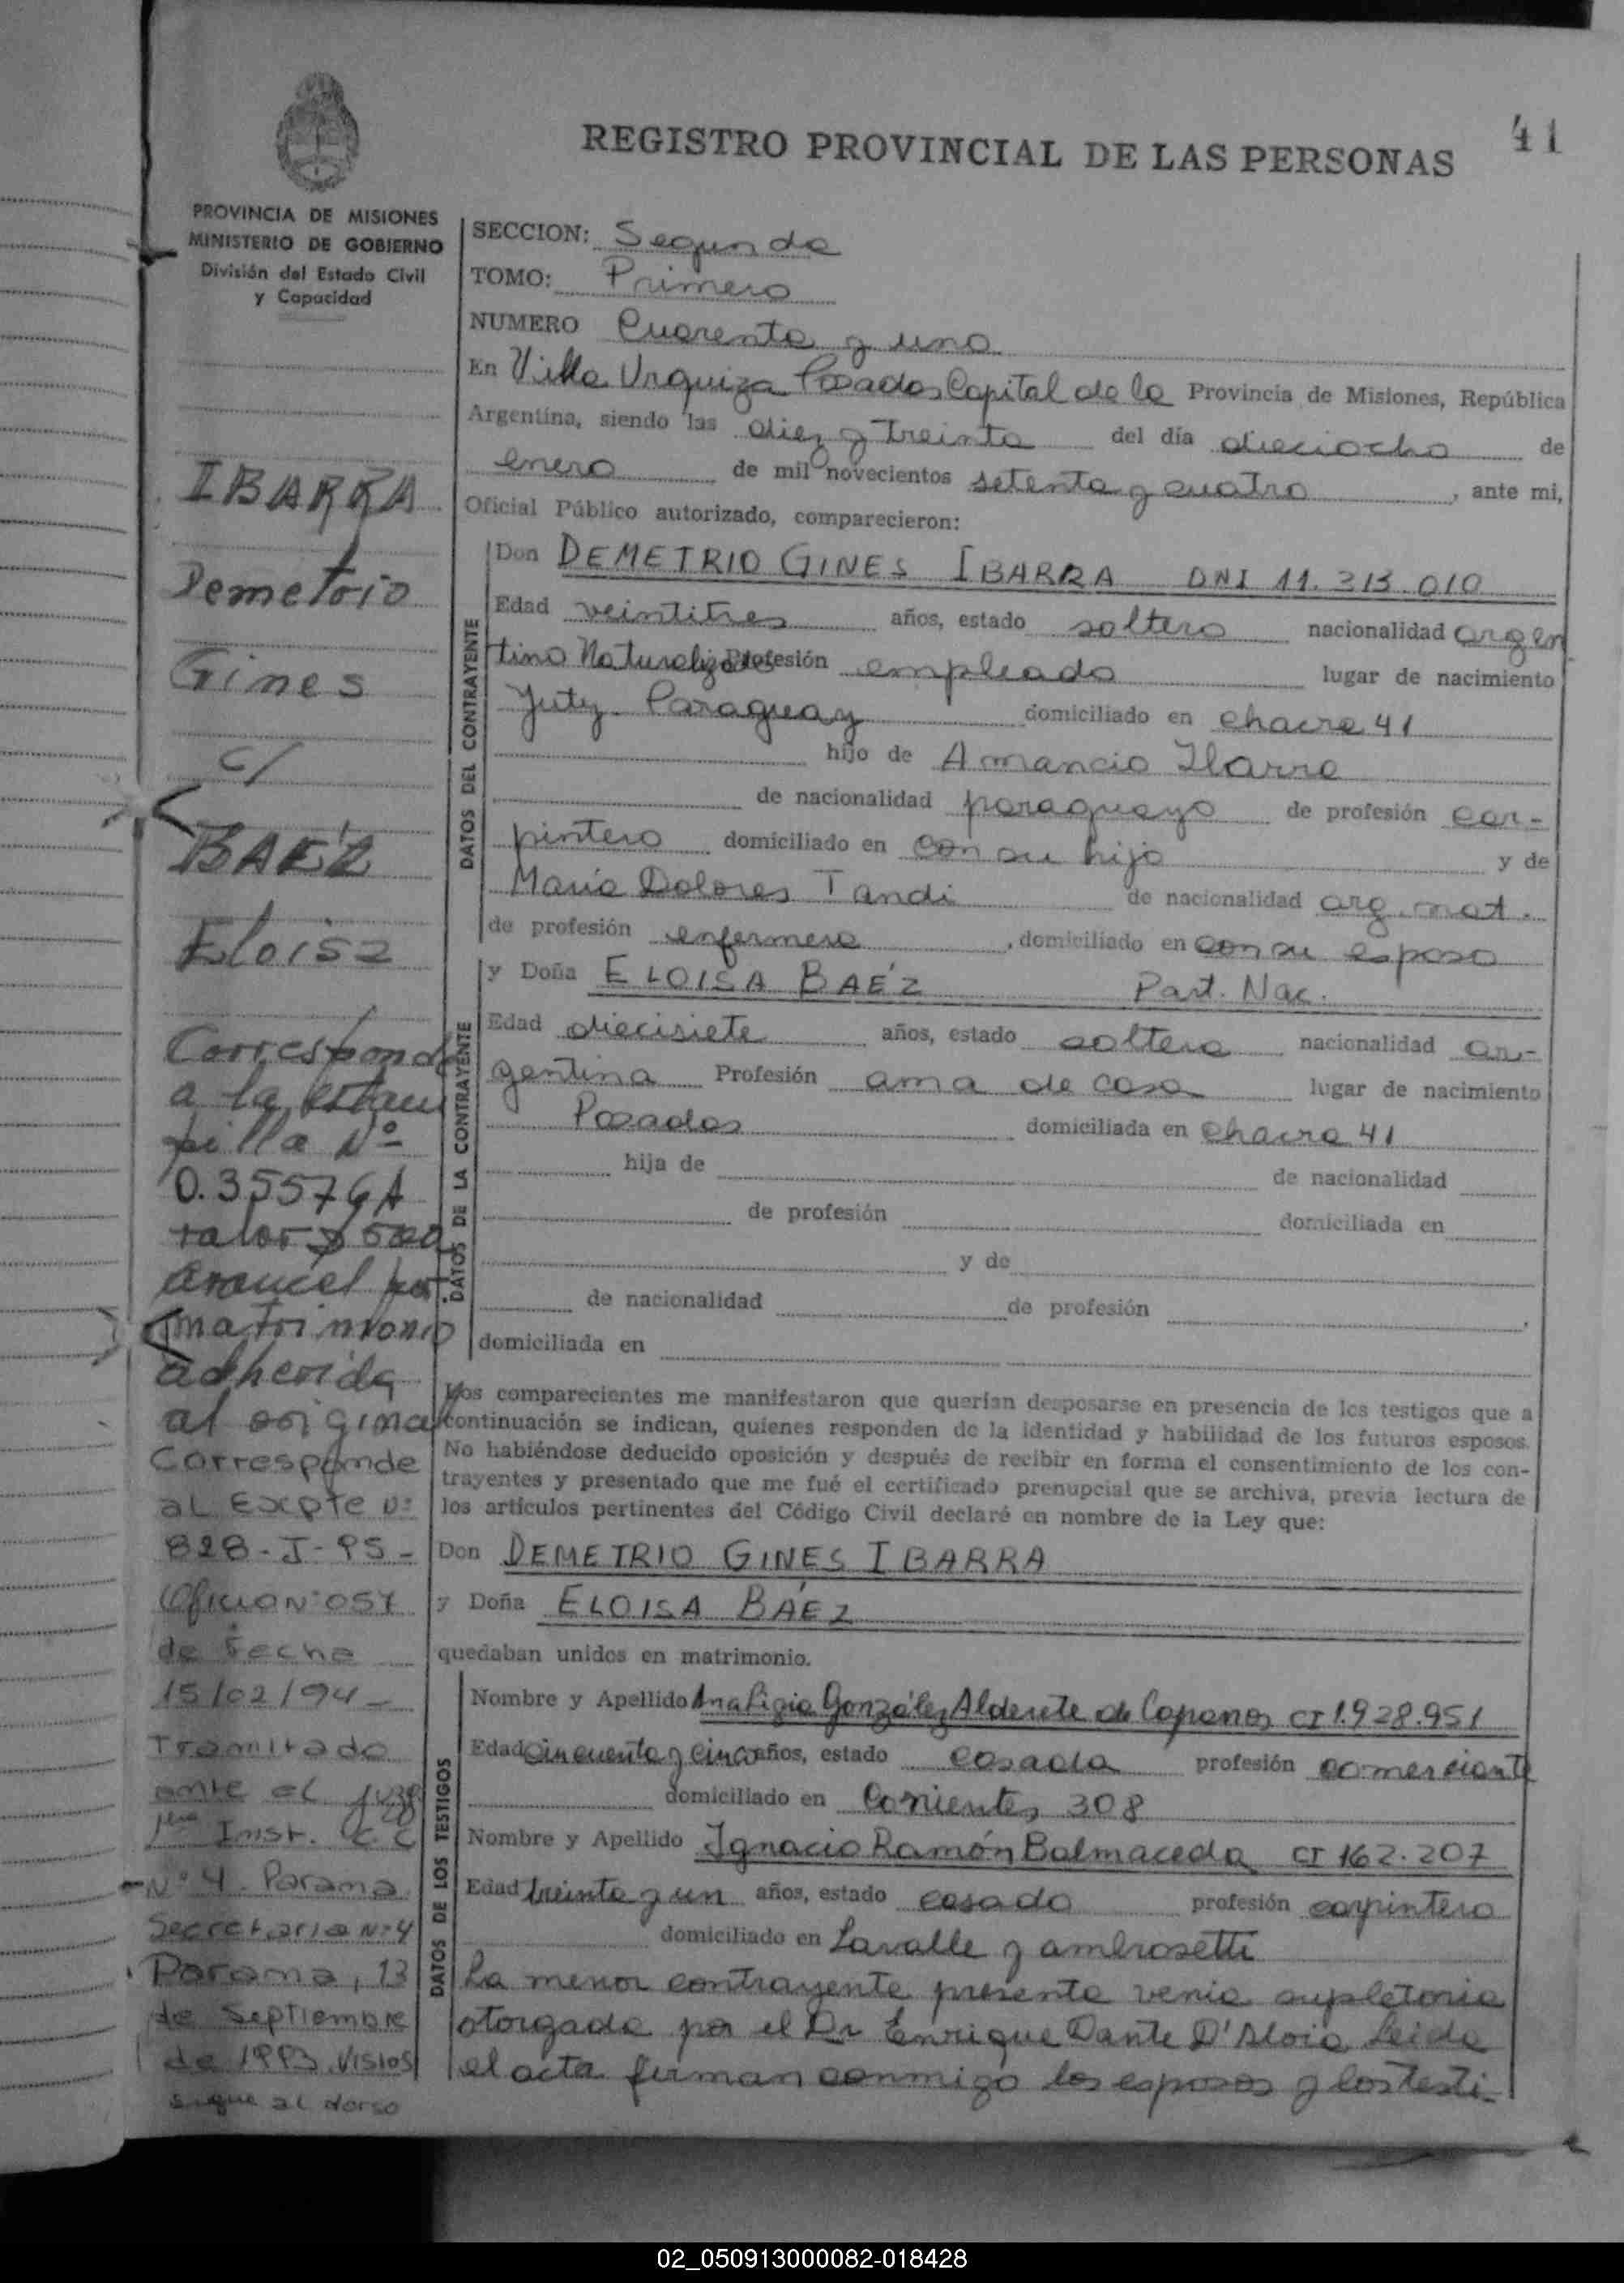 41
REGISTRO PROVINCIAL DE LAS PERSONAS
PROVINCIA DE MISIONES
MINISTERIO DE GOBIERNO
División del Estado Civil
y Capacidad
IBARRA
Demetrio
Gines
c/
BAÉZ
Eloisa
Corresponde
a la estam
pilla Nº
0.355764
valor $ 500
arancel por
matrimonio
adherida
al original
Corresponde
al Expte Nº
828-I-95-
Oficio Nº 057
de fecha
15/02/94-
Tramitado
ante el Juzg
1era Inst. C.C
Nº 4. Parama
Secretaria Nº 4
Parama, 13
de Septiembre
de 1993. Vistos
sigue al dorso
SECCION: Segunda
TOMO: Primero
NUMERO Cuarenta y uno
En Villa Urquiza Posadas Capital de la Provincia de Misiones, República
Argentina, siendo las diez y treinta del día dieciocho de
enero de mil novecientos setenta y cuatro, ante mi,
Oficial Público autorizado, comparecieron:
DATOS DEL CONTRAYENTE
Don DEMETRIO GINES IBARRA DNI 11.313.010
Edad veintitres años, estado soltero nacionalidad argen
tino Naturalizado Profesión empleado lugar de nacimiento
Yuty. Paraguay domiciliado en chacra 41
hijo de Amancio Ibarra
de nacionalidad paraguayo de profesión car-
pintero domiciliado en con su hijo y de
María Dolores Tandi de nacionalidad arg. nat.
de profesión enfermera, domiciliado en con su esposo
DATOS DE LA CONTRAYENTE
y Doña ELOISA BAÉZ Part. Nac.
Edad diecisiete años, estado soltera nacionalidad ar-
gentina Profesión ama de casa lugar de nacimiento
Posadas domiciliada en chacra 41
hija de de nacionalidad
de profesión domiciliada en
y de
de nacionalidad de profesión ,
domiciliada en
Los comparecientes me manifestaron que querían desposarse en presencia de los testigos que a
continuación se indican, quienes responden de la identidad y habilidad de los futuros esposos.
No habiéndose deducido oposición y después de recibir en forma el consentimiento de los con-
trayentes y presentado que me fué el certificado prenupcial que se archiva, previa lectura de
los artículos pertinentes del Código Civil declaré en nombre de la Ley que:
Don DEMETRIO GINES IBARRA
y Doña ELOISA BAÉZ
quedaban unidos en matrimonio.
DATOS DE LOS TESTIGOS
Nombre y Apellido Ana Ligia González Alderete de Capanos CI 1.928.951
Edad cincuenta y cinco años, estado casada profesión comerciante
domiciliado en Corrientes 308
Nombre y Apellido Ignacio Ramón Balmaceda CI 162.207
Edad treinta y un años, estado casado profesión carpintero
domiciliado en Lavalle y ambrosetti
La menor contrayente presenta venia supletoria
otorgada por el Dr Enrique Dante D'Aloia Leida
el acta firman conmigo los esposos y los testi-
02_050913000082-018428